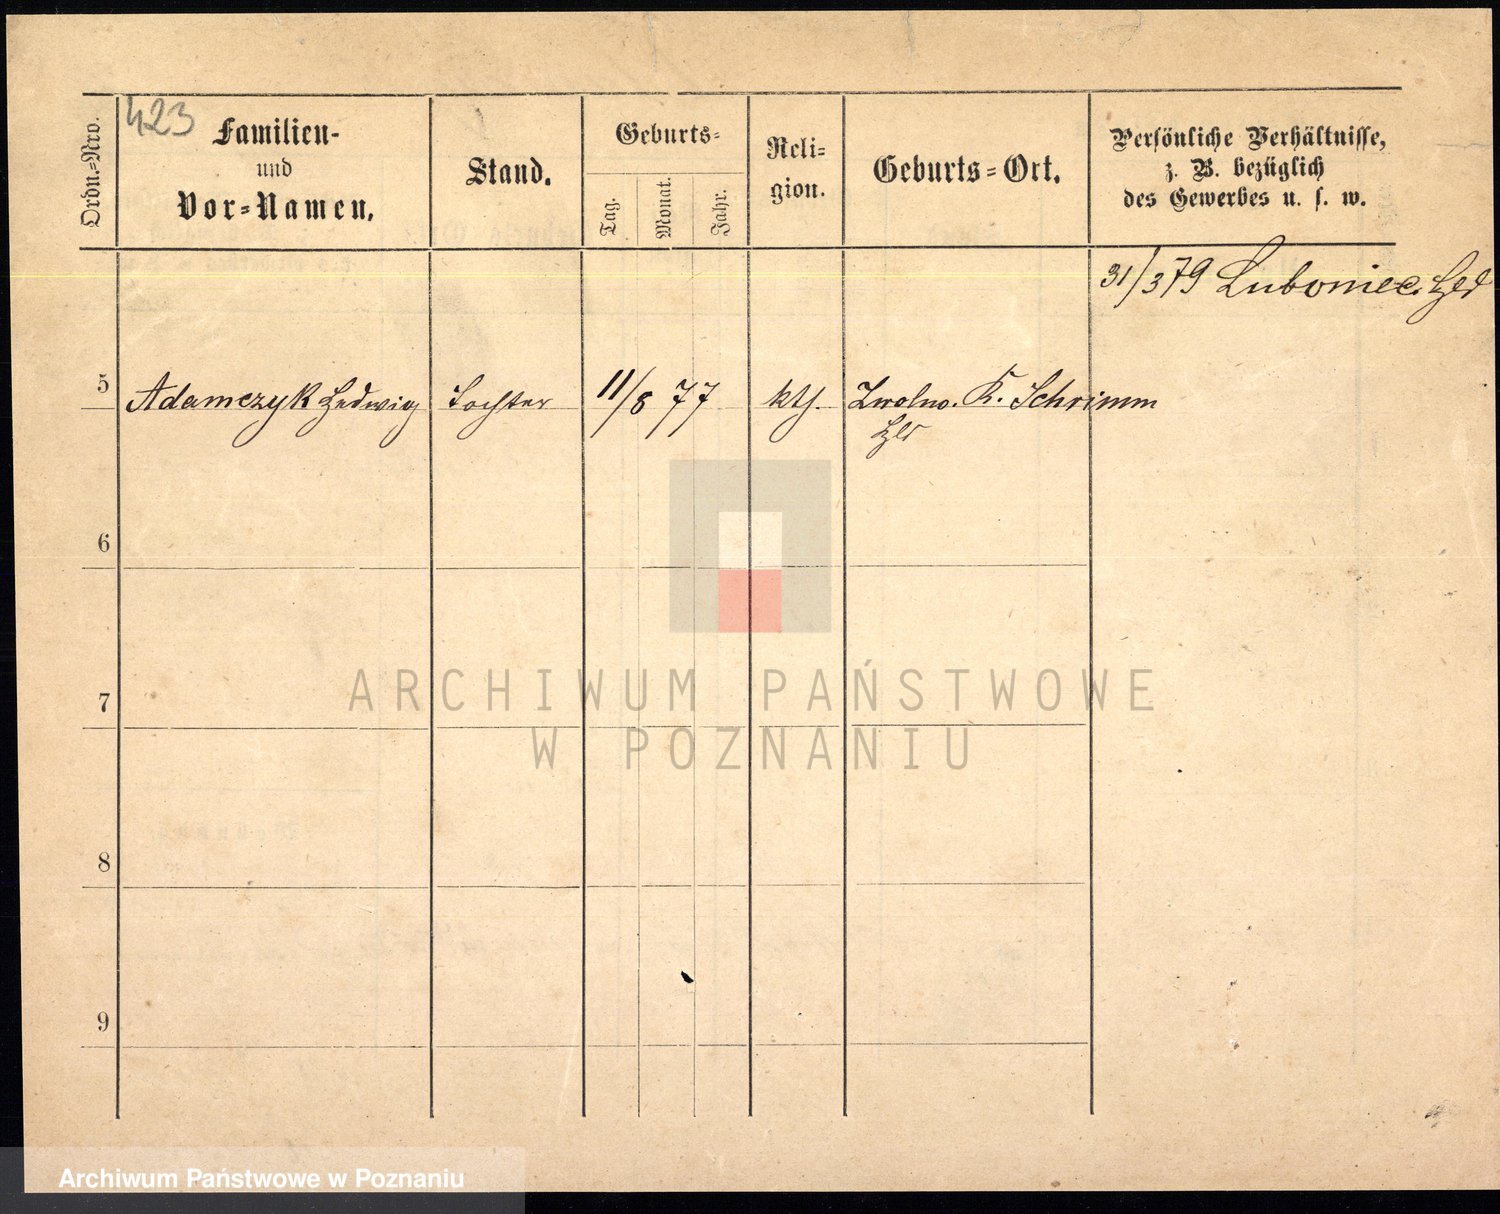 423
Ordn.-Nro.
Familien-
und
Vor-Namen.
Stand.
Geburts-
Tag.
Monat.
Jahr.
Reli-
gion.
Geburts-Ort.
Persönliche Verhältnisse,
z. B. bezüglich
des Gewerbes u. s. w.
31/3 79 Luboniec.
5 Adamczyk Hedwig Tochter 11/8 77 kth. Zwolno. K. Schrimm
6
7
8
9
ARCHIWUM PAŃSTWOWE
W POZNANIU
Archiwum Państwowe w Poznaniu